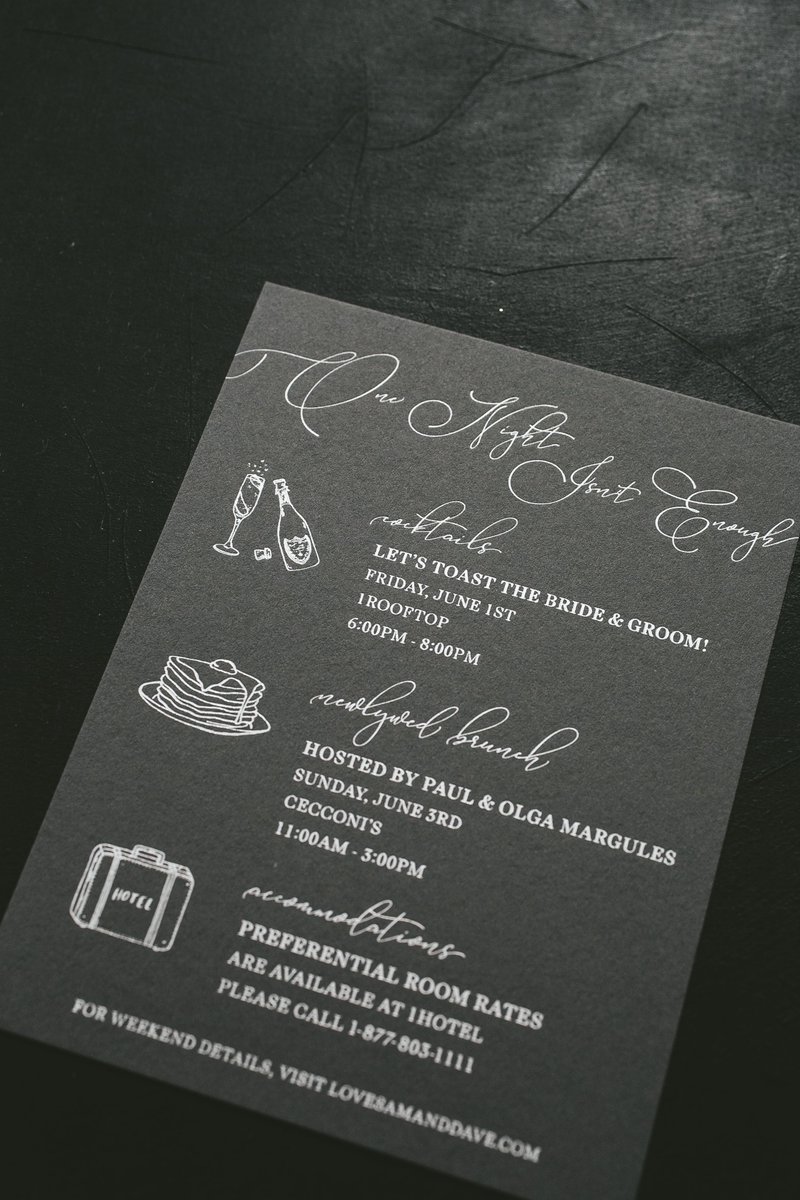 One Night Isn't Enough
cocktails
LET'S TOAST THE BRIDE & GROOM!
FRIDAY, JUNE 1ST
1ROOFTOP
6:00PM - 8:00PM
newlywed brunch
HOSTED BY PAUL & OLGA MARGULES
SUNDAY, JUNE 3RD
CECCONI'S
11:00AM - 3:00PM
HOTEL
accommodations
PREFERENTIAL ROOM RATES
ARE AVAILABLE AT 1HOTEL
PLEASE CALL 1-877-803-1111
FOR WEEKEND DETAILS, VISIT LOVESAMANDDAVE.COM